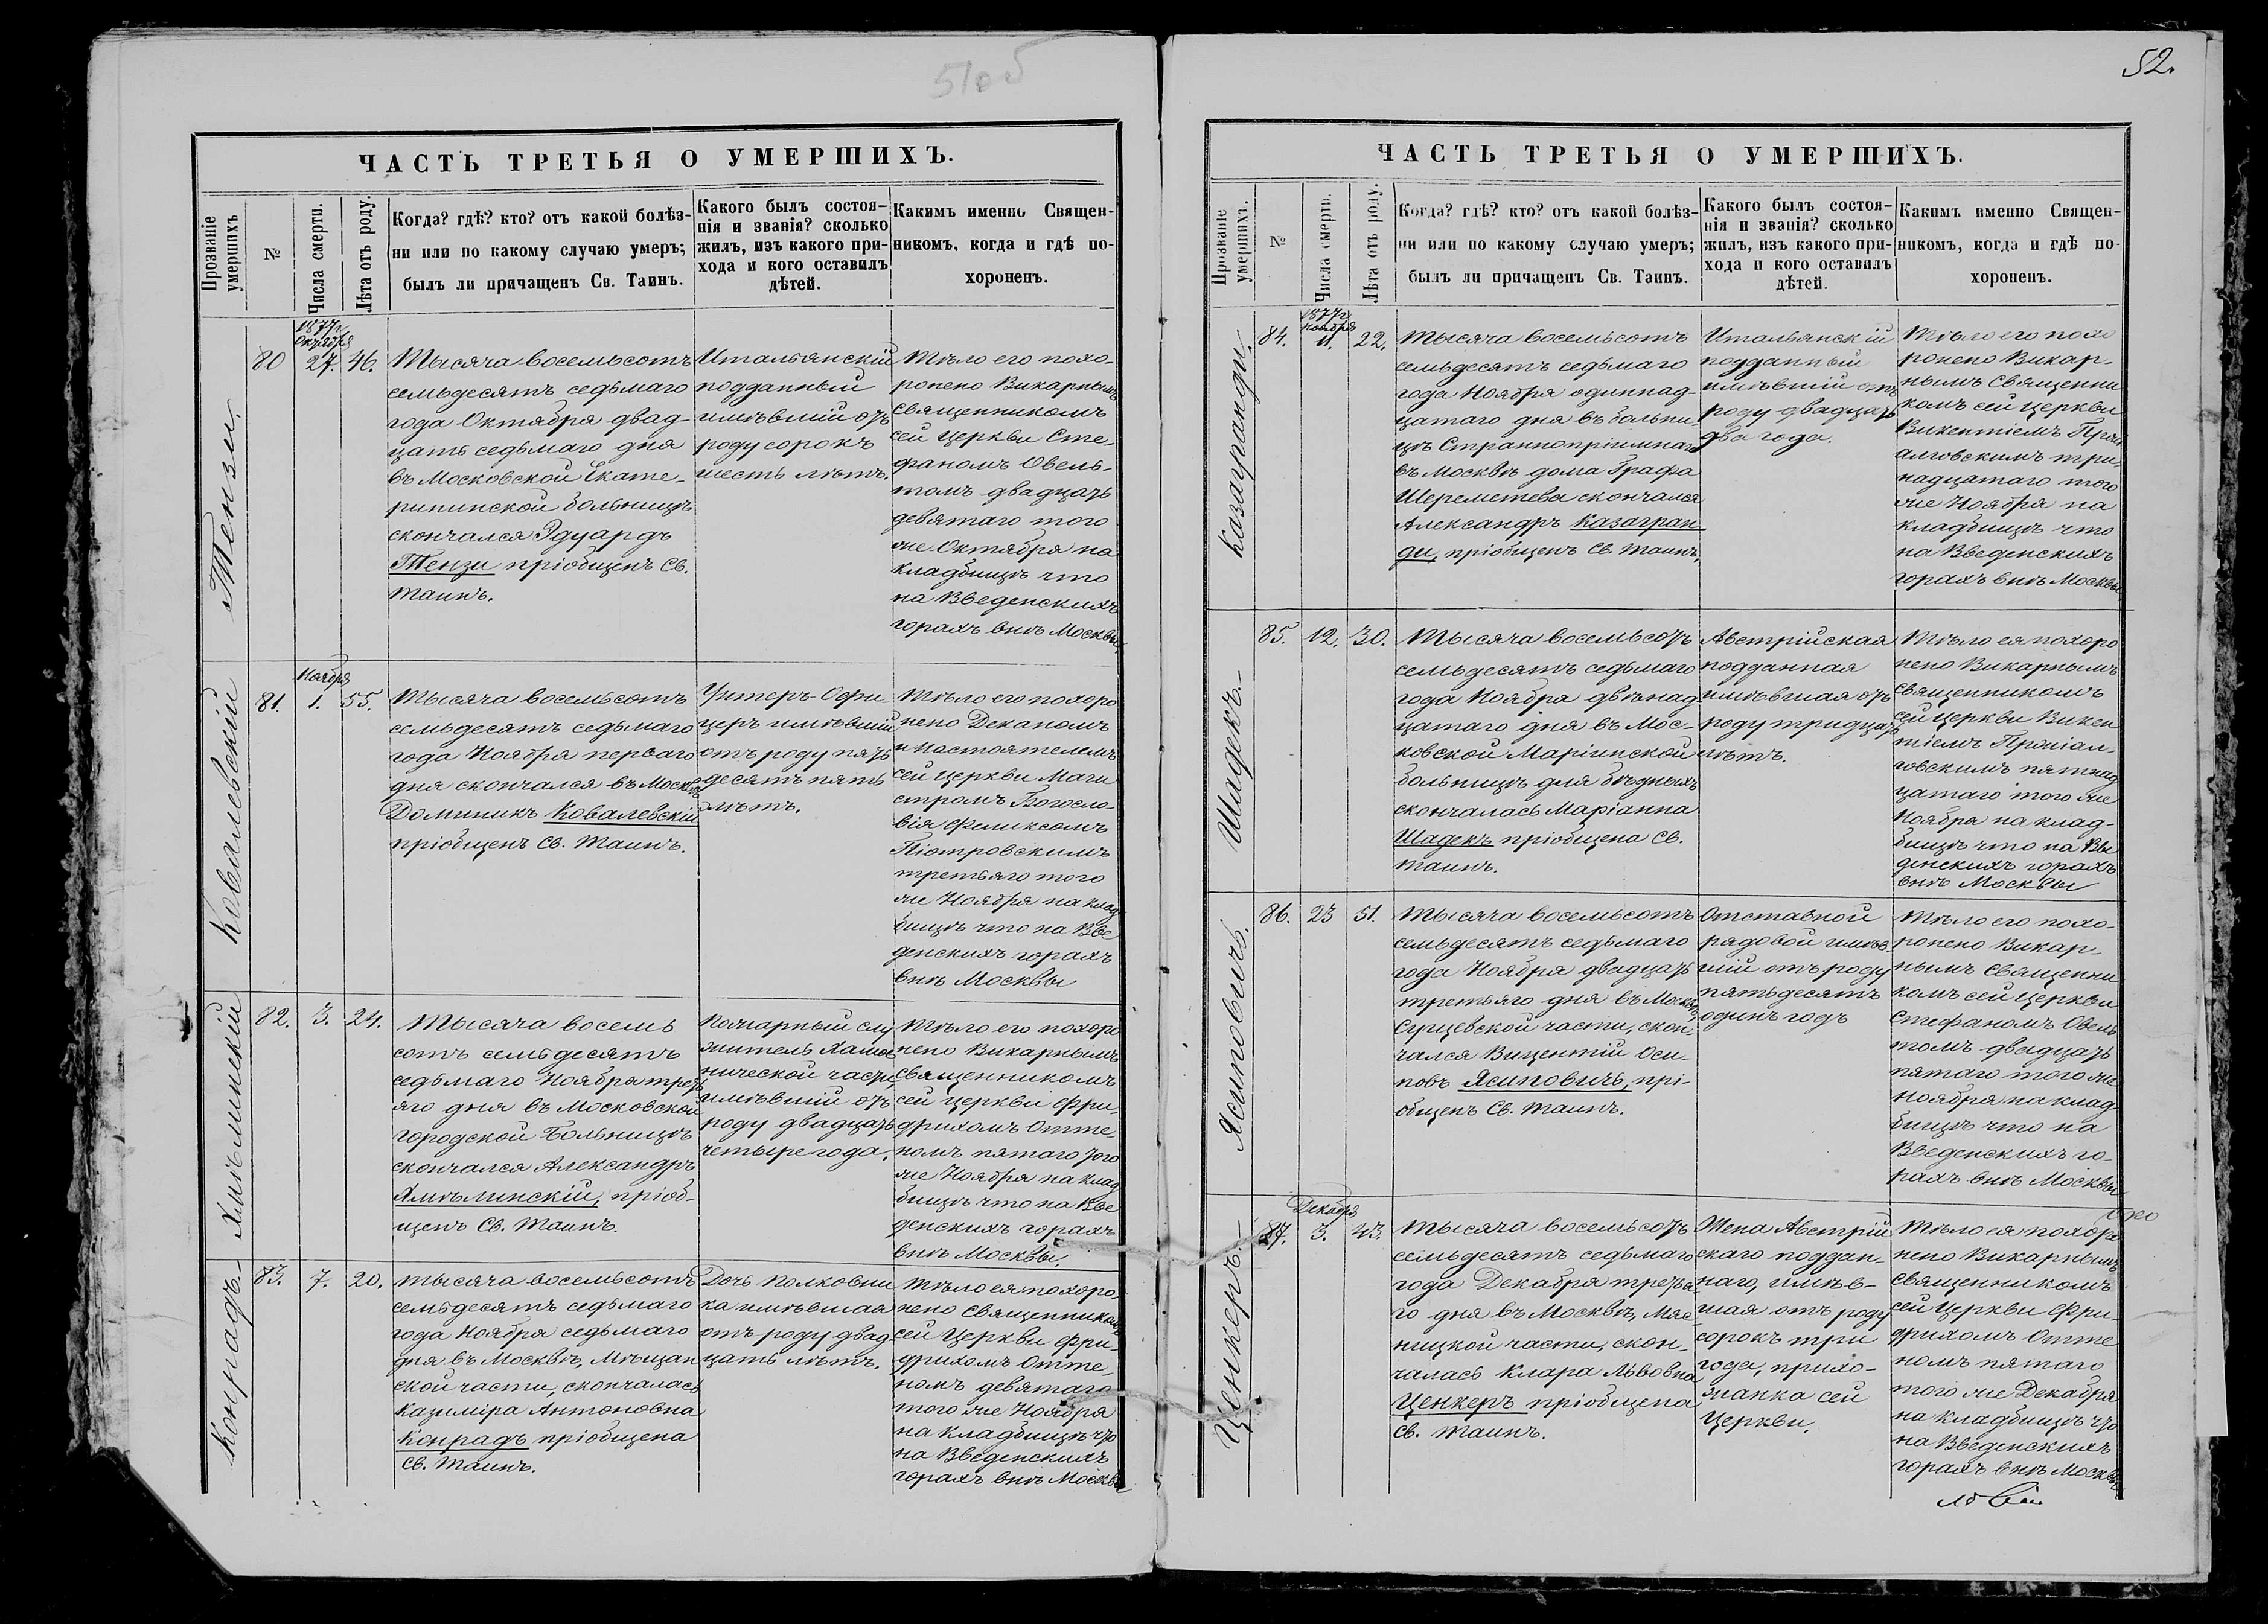 51об
ЧАСТЬ ТРЕТЬЯ О УМЕРШИХЪ.
Прозваніе
умершихъ
№
Числа смерти.
Лѣта отъ роду.
Когда? гдѣ? кто? отъ какой болѣз-
ни или по какому случаю умеръ;
былъ ли причащенъ Св. Таинъ.
Какого былъ состоя-
нія и званія? сколько
жилъ, изъ какого при-
хода и кого оставилъ
дѣтей.
Какимъ именно Священ-
никомъ, когда и гдѣ по-
хороненъ.
Тензи.
80
1877г.
Октября
27.
46.
Тысяча восемьсотъ
семьдесятъ седьмаго
года Октября двад-
цать седьмаго дня
въ Московской Екате-
рининской больницѣ
скончался Эдуардъ
Тензи пріобщенъ Св.
Таинъ.
Итальянскій
подданный
имѣвшій отъ
роду сорокъ
шесть лѣтъ.
Тѣло его похо-
ронено Викарнымъ
Священникомъ
сей Церкви Сте-
фаномъ Овель-
томъ двадцать
девятаго того
же Октября на
кладбищѣ что
на Введенскихъ
горахъ внѣ Москвы.
Ковалевскій
81.
Ноября
1.
55.
Тысяча восемьсотъ
семьдесятъ седьмаго
года Ноября перваго
дня скончался въ Москвѣ
Доминикъ Ковалевскій
пріобщенъ Св. Таинъ.
Унтеръ-Офи
церъ имѣвшій
отъ роду пять
десятъ пять
лѣтъ.
Тѣло его похоро
нено Деканомъ
и Настоятелемъ
сей Церкви Маги
стромъ Богосло-
вія Феликсомъ
Піотровскимъ
третьяго того
же Ноября на клад
бищѣ что на Вве
денскихъ горахъ
внѣ Москвы
Хмѣлинскій
82.
3.
24.
Тысяча восемь
сотъ семьдесятъ
седьмаго Ноября треть
яго дня въ Московской
городской Больницѣ
скончался Александръ
Хмѣлинскій, пріоб-
щенъ Св. Таинъ.
Пожарный слу
житель Хамов
нической части
имѣвшій отъ
роду двадцать
четыре года.
Тѣло его похоро
нено Викарнымъ
Священникомъ
сей Церкви Фри-
дрихомъ Отте-
номъ пятаго того
же Ноября на клад
бищѣ что на Вве
денскихъ горахъ
внѣ Москвы.
Конрадъ.
83.
7.
20.
Тысяча восемьсотъ
семьдесятъ седьмаго
года Ноября седьмаго
дня въ Москвѣ, Мѣщан
ской части, скончалась
Казиміра Антоновна
Конрадъ пріобщена
Св. Таинъ.
Дочь Полковни
ка имѣвшая
отъ роду двад
цать лѣтъ.
Тѣло ея похоро
нено Священникомъ
сей Церкви Фри-
дрихомъ Отте-
номъ девятаго
того же Ноября
на кладбищѣ что
на Введенскихъ
горахъ внѣ Москвы
52.
ЧАСТЬ ТРЕТЬЯ О УМЕРШИХЪ.
Прозваніе
умершихъ.
№
Числа смерти.
Лѣта отъ роду.
Когда? гдѣ? кто? отъ какой болѣз-
ни или по какому случаю умеръ;
былъ ли причащенъ Св. Таинъ.
Какого былъ состоя-
нія и званія? сколько
жилъ, изъ какого при-
хода и кого оставилъ
дѣтей.
Какимъ именно Священ-
никомъ, когда и гдѣ по-
хороненъ.
Казагранди.
84.
1877г.
Ноября
11.
22.
Тысяча восемьсотъ
семьдесятъ седьмаго
года Ноября одиннад-
цатаго дня въ больни-
цѣ Страннопріимнаго
въ Москвѣ дома Графа
Шереметева скончался
Александръ Казагран
ди, пріобщенъ Св. Таинъ.
Итальянскій
подданный
имѣвшій отъ
роду двадцать
два года.
Тѣло его похо
ронено Викар-
нымъ Священни
комъ сей Церкви
Викентіемъ Проні
алговскимъ три-
надцатаго того
же Ноября на
кладбищѣ что
на Введенскихъ
горахъ внѣ Москвы.
Шадекъ.
85.
12.
30.
Тысяча восемьсотъ
семьдесятъ седьмаго
года Ноября двѣнад
цатаго дня въ Мос-
ковской Маріинской
больницѣ для бѣдныхъ
скончалась Маріанна
Шадекъ пріобщена Св.
Таинъ.
Австрійская
подданная
имѣвшая отъ
роду тридцать
лѣтъ.
Тѣло ея похоро
нено Викарнымъ
Священникомъ
сей Церкви Викен
тіемъ Проніал-
говскимъ пятнад
цатаго того же
Ноября на клад-
бищѣ что на Вве
денскихъ горахъ
внѣ Москвы
Ясиновичъ.
86.
23
51.
Тысяча восемьсотъ
семьдесятъ седьмаго
года Ноября двадцать
третьяго дня въ Москвѣ,
Сущевской части, скон-
чался Вицентій Оси-
повъ Ясиновичъ, прі-
общенъ Св. Таинъ.
Отставной
рядовой имѣв-
шій отъ роду
пятьдесятъ
одинъ годъ
Тѣло его похо-
ронено Викар-
нымъ Священни
комъ сей Церкви
Стефаномъ Овель
томъ двадцать
пятаго того же
Ноября на клад-
бищѣ что на
Введенскихъ го-
рахъ внѣ Москвы
Ценкеръ.
87.
Декабря
3.
43.
Тысяча восемьсотъ
семьдесятъ седьмаго
года Декабря третья
го дня въ Москвѣ, Мяс-
ницкой части, скон-
чалась Клара Львовна
Ценкеръ пріобщена
Св. Таинъ.
Жена Австрій
скаго поддан-
наго, имѣв-
шая отъ роду
сорокъ три
года, прихо-
жанка сей
Церкви.
Тѣло ея похоро
нено Викарнымъ
Священникомъ
сей Церкви Фри-
дрихомъ Отте
номъ пятаго
того же Декабря
на кладбищѣ что
на Введенскихъ
горахъ внѣ Москвы.